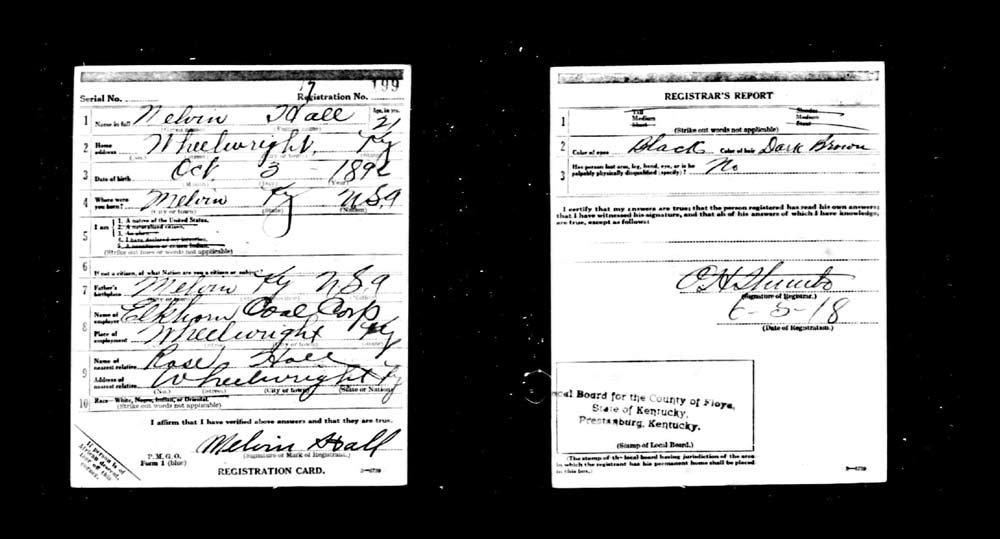 Serial No. Registration No. 199
1 Name in full Melvin Hall Age, in yrs. 21
2 Home address Wheelwright, Ky
3 Date of birth Oct. 3 1896
4 Where were you born? Melvin Ky USA
(City or town) (State) (Nation)
5 I am
1. A native of the United States.
2. A naturalized citizen.
3. An alien.
4. I have declared my intention.
5. A noncitizen or citizen Indian.
(Strike out lines or words not applicable)
6 If not a citizen, of what Nation are you a citizen or subject?
7 Father's birthplace Melvin Ky USA
8 Name of employer Elkhorn Coal Corp
Place of employment Wheelwright Ky
9 Name of nearest relative Rosel Hall
Address of nearest relative Wheelwright Ky
(No.) (Street) (City or town) (State or Nation)
10 Race—White, Negro, Indian, or Oriental.
(Strike out words not applicable)
I affirm that I have verified above answers and that they are true.
Melvin Hall
(Signature or Mark of Registrant.)
P. M. G. O.
Form 1 (blue)
REGISTRATION CARD.
If person is of
African descent,
tear off this
corner.
REGISTRAR'S REPORT
1 Tall Medium Short Slender Medium Stout
(Strike out words not applicable)
2 Color of eyes Black Color of hair Dark Brown
3 Has person lost arm, leg, hand, eye, or is he palpably physically disqualified (specify)? No
I certify that my answers are true; that the person registered has read his own answers;
that I have witnessed his signature, and that all of his answers of which I have knowledge,
are true, except as follows:
(Signature of Registrar.)
6-5-18
(Date of Registration.)
Local Board for the County of Floyd,
State of Kentucky,
Prestonburg, Kentucky.
(Stamp of Local Board.)
(The stamp of the local board having jurisdiction of the area
in which the registrant has his permanent home shall be placed
in this box.)